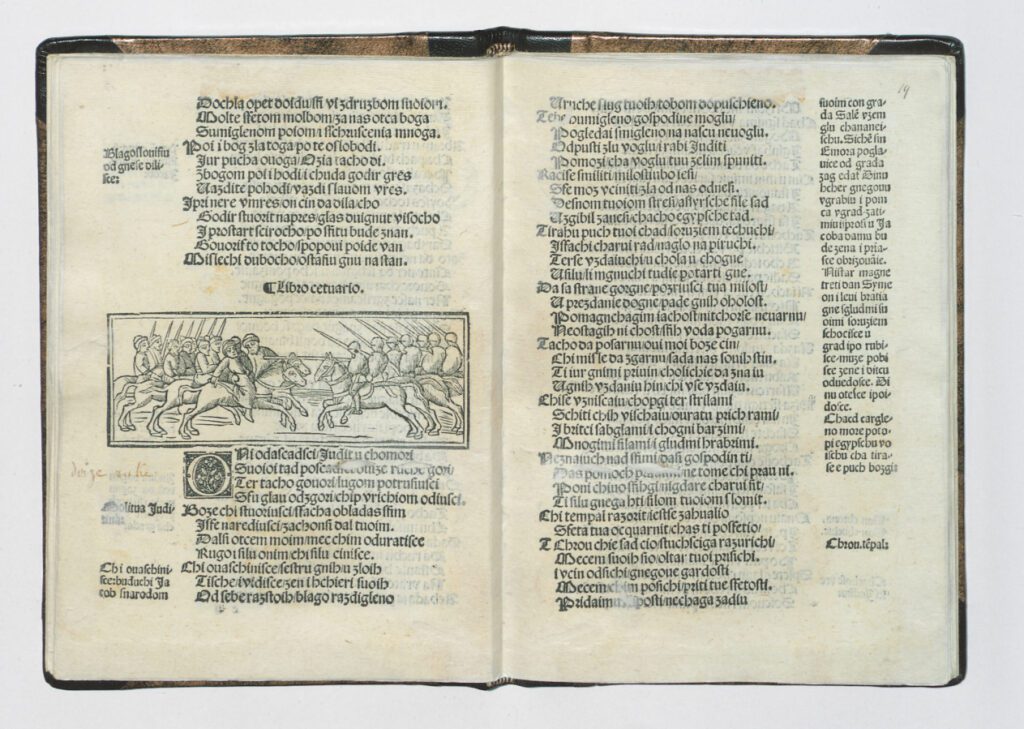 Dochla opet doſduſſi vſ zdruzbom ſuoiom.
Molte ſſetom molbom/za nas otca boga
Sumiglenom poiom
Poi i bog zla toga po te oſlobodi.
Jur pucha ouoga/Ozia tacho di.
Zbogom poi i hodi i chuda godir gres
Uazdite pohodi/vazdi ſlauom vres.
I pri nere vmres/on cin da dila cho
Godir ſtuorit napres/glas duignut viſocho
I proſtart ſcirocho/po ſſitu bude znan.
Gouoriſ to tocho/ſpopoui poide van
Miſlechi dubocho/oſtaſiu gnu na ſtan.
Blagoſlouiſſiu
od gneſe diliſte:
¶Libro cetuarto.
Oni odaſcadſci/Judit u chomori
Suoioi tad poſcadci
Ter tacho gouori/ugom potruſiuſci
Sſu glau odzgori/chip vrichiom odiuſci.
Boze chi ſtuoriuſci/ſſacha obladas ſſim
Jſſe narediuſci/zachonſi dal tuoim.
Dalſi otcem moim/mec chim oduratiſce
Rugoi ſilu onim chi ſilu ciniſce.
Chi ouaſchiniſce/ſeſtru gnih/u zloih
Tiſche/vidiſce/zen i hchieri ſuoih
Od ſebe razſtoih/blago razdigleno
duize ruke
Molitua Judi-
Chi ouaſchini-
ſce:buduchi Ja
cob ſnarodom
19
Uruche ſlug tuoih/tobom dopuſchieno.
Tebe oumigleno/goſpodine moglu/
Pogledai ſmigleno na naſcu neuoglu.
Odpuſti zlu voglu/i rabi Juditi
Pomozi/cha voglu tuu zelim ſpuniti.
Raciſe ſmiliti miloſtiubo ieſi/
Sſe moz vciniti/zla od nas odneſi.
Deſnom tuoiom ſtreſi/aſſyrſche ſile ſad
Uzgibil zaneſi/chacho egypſche tad.
Tirahu puch tuoi chad/ſoruziem techuchi/
Jſſachi charui rad/naglo na piruchi.
Terſe vzdaiuchi/u chola u chogne
Uſilu/i mgnuchi tudie potarti gne.
Da ſa ſtrane gorgne/pozriuſci tua miloſt/
U prezdanie dogne/pade gnih oholoſt.
Pomagnchagim iachoſt/nitchorſe neuarnu/
Neoſtagih ni choſt/ſſih voda pogarnu.
Tacho da poſarnu/oui moi boze cin/
Chi miſle da zgarnu/ſada nas ſouih ſtin.
Ti iur gnimi priuin/cholichie da zna iu
Ugnih vzdaniu hin/chi vſe vzdaiu.
Chiſe vzniſcaiu/chopgi ter ſtrilami
Schiti chih viſchaiu/ouratu prich rami/
J britci ſabglami/i chogni barzimi/
Mnogimi ſilami/i gludmi hrabrimi.
Neznaiuch nad ſſimi/daſi goſpodin ti/
ne tome chi prau ni.
Poni chiuo ſſihgi nigdare charui ſit/
Ti ſilu gnega hti ſilom tuoiom ſlomit.
Chi tempal razorit/ieſtſe zahualio
Sſeta tua ocquarnit/chas ti poſſetio/
T Chrou chie ſad cio/ſtuchſciga razurichi/
Mecem ſuoih ſio/oltar tuoi priſichi.
i vcin odſichi/gnegoue gardoſti
Mecem chim poſichi/priti tue ſſetoſti.
Pridaim poſti/nechaga zadiu
ſuoim con gra-
da Salē vzem
glu chananei-
ſchu. Sichē ſin
Emora pogla-
uice od grada
zag edaſ Dinu
hcher gnegouu
vgrabiu i pom
ca vgrad/zati-
miu iproſi u Ja
coba damu bu
de zena i pria-
ſce obrizouaie.
Niſtar magne
treti dan Syme
on i leui bratia
gne ſgludmi ſu
oimi ſoruziem
ſchociſce u
grad ipo rubi-
ſce/muze pobi
ſce zene i dicu
oduedoſce. Di
nu oteſce ipoi-
doſce.
Chaed cargle-
no more poto-
pi egypſchu vo
iſchu cha tira-
ſe e puch bozgi
Chrou.tēpal: